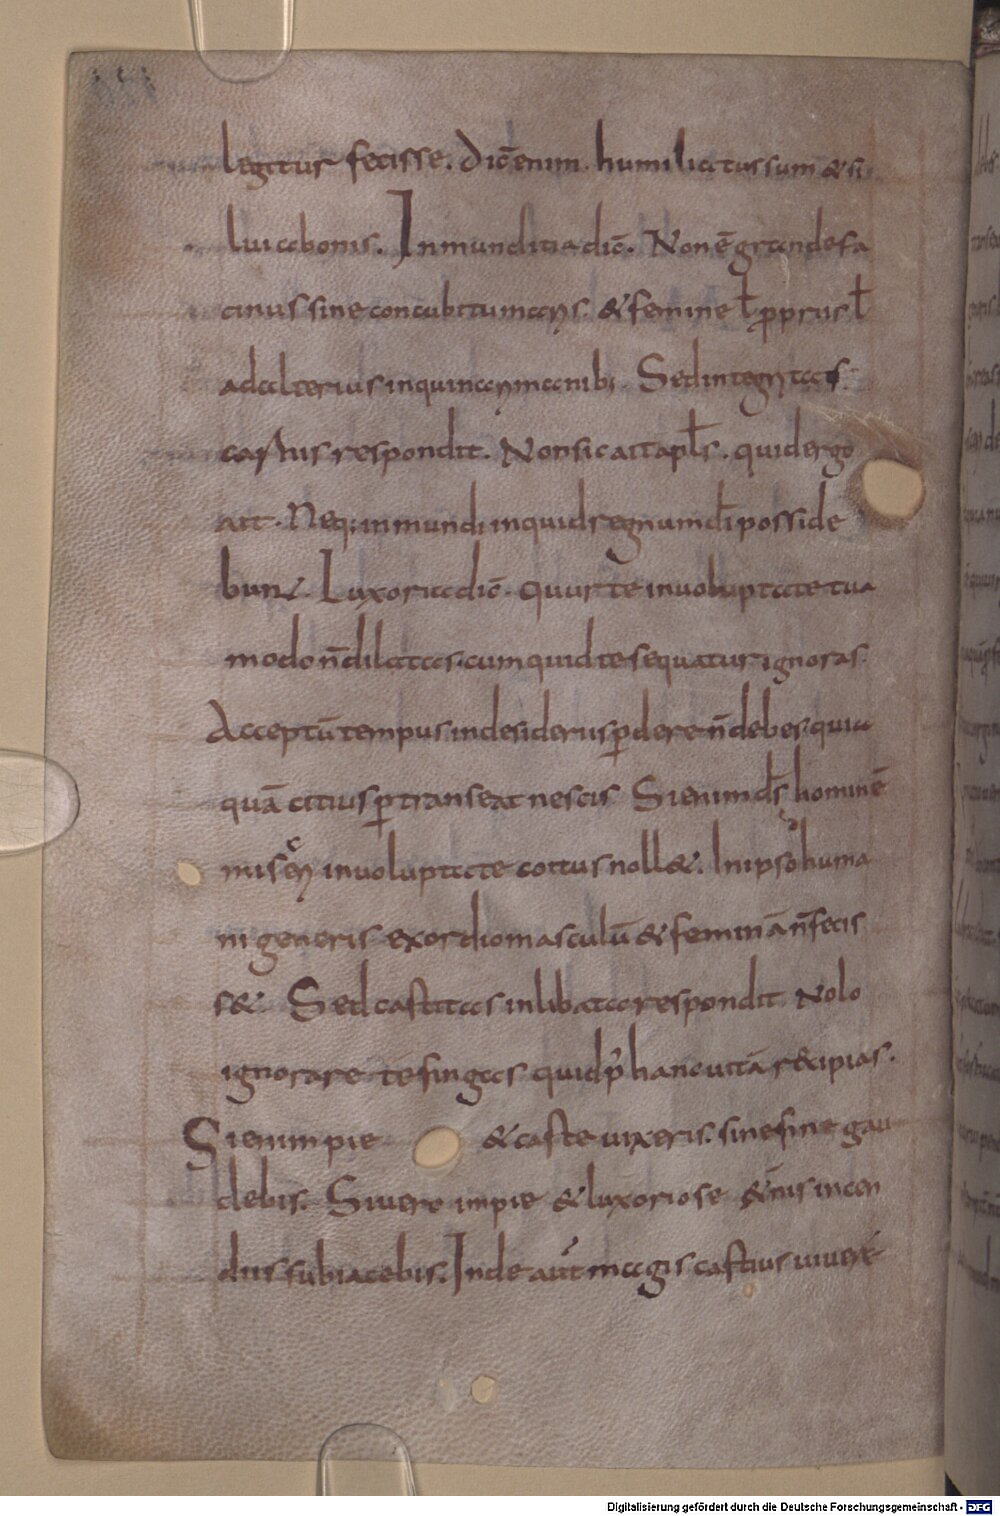 legitur fecisse. Dic̄ enim. humiliatus sum & si
lui a bonis. Inmunditia dic̄. Non ē grande fa
cinus sine concubitu mariis. & femine ł propriis ł
ad alterius inquinari manib; Sed integritas
castius respondit. Non sic ait apłs. quid ergo
ait. Neq; inmundi inquid regnum dī posside
bunt. Luxoria dic̄. Quur te in voluptate tua
modo n̄ dilatas. cum quid te sequatur ignoras.
Acceptū tempus in desideriis pdere n̄ debes. quia
quā citius ptranseat nescis. Si enim ds̄ hominē
misceri in voluptate coitus noll&. In ipso huma
ni generis exordio masculū & feminā n̄ fecis
s&. Sed castitas inlibata respondit. Nolo
ignorare te fingas quid p̄ hanc uitā recipias.
Si enim pie & caste uixeris. sine fine gau
debis. Si uero impie & luxoriose &̄nis incen
diis subiacebis. Inde aut̄ magis castius uiuere
Digitalisierung gefördert durch die Deutsche Forschungsgemeinschaft - DFG